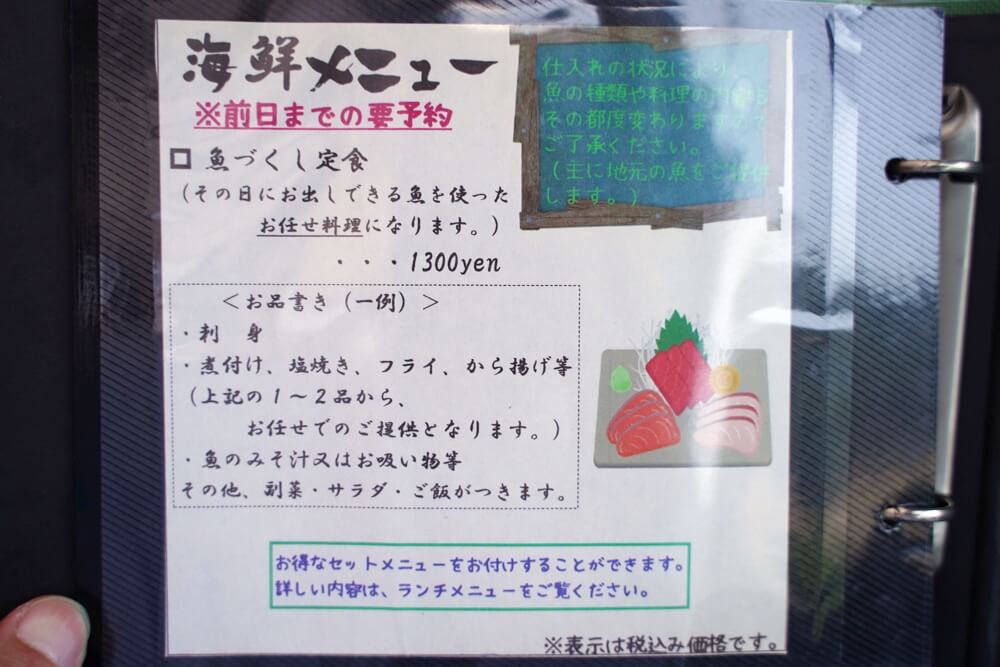 海鮮メニュー
※前日までの要予約
仕入れの状況により、
魚の種類や料理の
その都度変わります
ご了承ください。
(主に地元の魚をご提供
します。)
□ 魚づくし定食
(その日にお出しできる魚を使った
お任せ料理になります。)
・・・1300yen
<お品書き(一例)>
・刺 身
・煮付け、塩焼き、フライ、から揚げ等
(上記の1~2品から、
お任せでのご提供となります。)
・魚のみそ汁又はお吸い物等
その他、副菜・サラダ・ご飯がつきます。
お得なセットメニューをお付けすることができます。
詳しい内容は、ランチメニューをご覧ください。
※表示は税込み価格です。